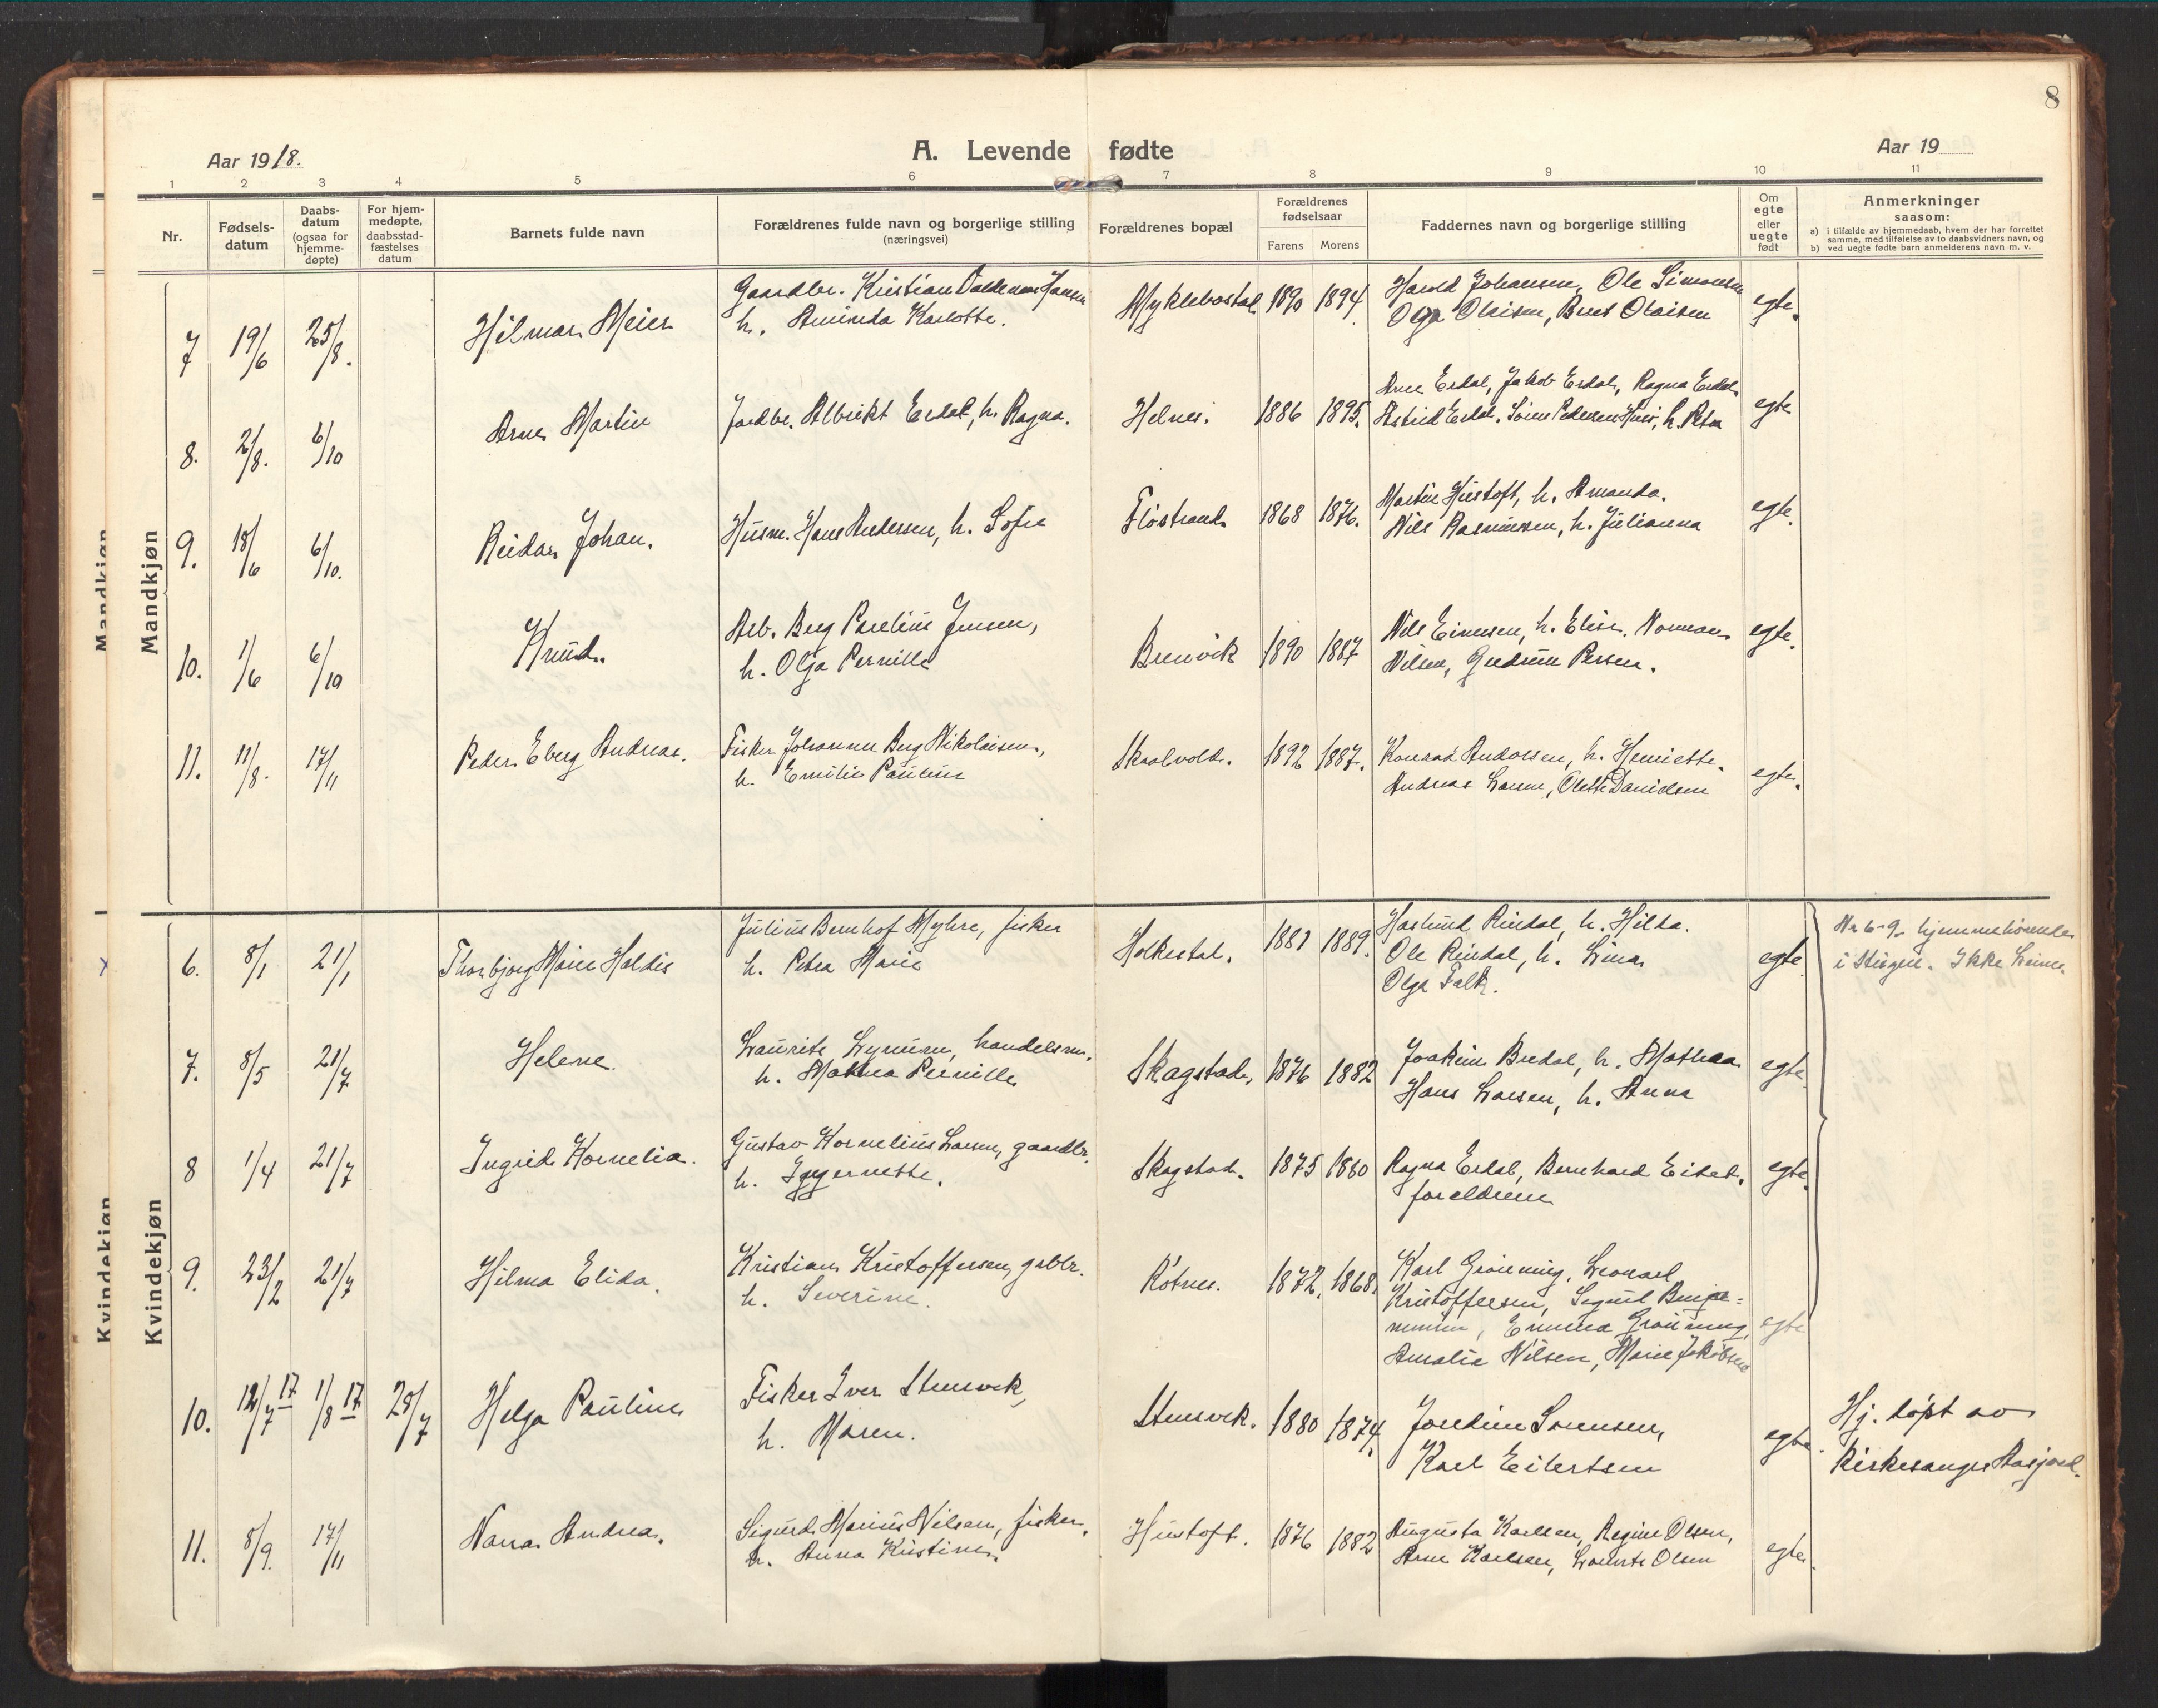 8
Aar 1918.
A. Levende fødte
Aar 19
1 2 3 4 5 6 7 8 9 10 11
Nr.
Fødsels-
datum
Daabs-
datum
(ogsaa for
hjemme-
døpte)
For hjem-
medøpte,
daabsstad-
fæstelses
datum
Barnets fulde navn
Forældrenes fulde navn og borgerlige stilling
(næringsvei)
Forældrenes bopæl
Forældrenes
fødselsaar
Farens Morens
Faddernes navn og borgerlige stilling
Om
egte
eller
uegte
født
Anmerkninger
saasom:
a) i tilfælde av hjemmedaab, hvem der har forrettet
samme, med tilføielse av to daabsvidners navn, og
b) ved uegte fødte barn anmelderens navn m. v.
Mandkjøn
Mandkjøn
7 19/6 25/8. Hilmar Meier
Gaardbr. Kristian Valdemar Jansen
h. Aminda Karlotte.
Myklebostad 1890 1894.
Harold Johansen, Ole Simonsen
Olga Olaisen, Berit Olaisen
egte.
8. 21/8. 6/10 Arne Martin
Jordbr. Albrikt Erdal, h. Ragna.
Helnes. 1886 1895.
Arne Erdal, Jakob Erdal, Ragna Erdal
Astrid Erdal. Sören Pedersen, h. Petra
egte
9. 18/6 6/10. Reidar Johan.
Husm. Hans Andersen, h. Sofie
Fløstrand. 1868 1876.
Martin Hustoft, h. Amanda.
Nils Rasmussen, h. Julianna
egte.
10. 1/6 6/10 Knud.
Arb. Berg Parelius Jensen,
h. Olga Pernille
Brenvik 1890 1887
Nils Einersen, h. Elise. Norman
Nilsen, Gudrun Persen.
egte.
11. 11/8. 17/11 Peder Eberg Andreas.
Fisker Johannes Berg Nikolaisen,
h. Emilie Pauline
Skaalvold. 1892 1887.
Konrad Andorsen, h. Henriette.
Andreas Larsen, Olette Danielsen
egte.
Kvindekjøn
Kvindekjøn
x
6. 8/1 21/1 Thorbjørg Marie Haldis
Julius Bernhof Myhre, fisker
h. Petra Marie
Holkestad. 1881 1889.
Haslund Rindal, h. Hilda.
Ole Rindal, h. Lina.
Olga Falk.
egte
Nr 6-9. hjemmehørende
i Steigen. Ikke Leines.
7. 8/5 21/7 Helene.
Laurits Lynum, handelsm.
h. Mathea Pernille
Skagstad, 1876 1882
Joakim Bredal, h. Mathea
Hans Larsen, h. Anna
egte.
8 1/4 21/7 Ingrid Kornelia.
Gustav Kornelius Larsen, gaardbr.
h. Iggernette.
Skagstad. 1875 1880
Ragna Erdal, Bernhard Eidet.
foreldrene
egte.
9. 23/2 21/7 Hilma Elida.
Kristian Kristoffersen, grdbr.
h. Severine.
Rötnes. 1872. 1868.
Karl Grönning, Leonard
Kristoffersen, Sigurd Benja-
minsen, Emma Grönning,
Amalie Nilsen, Marie Jakobsen
egte
10. 12/7 17 1/8 17 28/7 Helga Pauline
Fisker Iver Stensvik,
h. Maren.
Stensvik. 1880 1874.
Jordine Sørensen,
Karl Eilertsen
egte.
Hj. döpt av
Kirkesanger Aasjord.
11. 8/9. 17/11 Nanna Andrea.
Sigurd Marius Nilsen, fisker,
h. Anna Kristine.
Hustoft. 1876 1882
Augusta Karlsen, Regine Olsen,
Arne Karlsen, Laurits Olsen
egte.